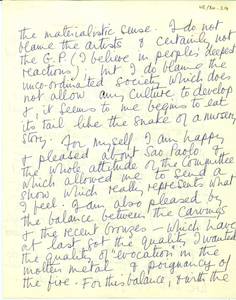 the materialistic sense. I do not
blame the artists & certainly not
the G.P. (I believe in people's deepest
reactions) but I do blame the
unco-ordinated society which does
not allow any culture to develop
& it seems to me begins to eat
its tail like the snake of a nursery
story.
For myself I am happy
& pleased about Sao Paolo &
the whole attitude of the Committee
which allowed me to send a
show which really represents what
I feel. I am also pleased by
the balance between the Carvings
& the recent bronzes - which have
at last got the quality I wanted
the quality of 'evocation' in the
molten metal & poignancy of
the fire. For this balance, with the